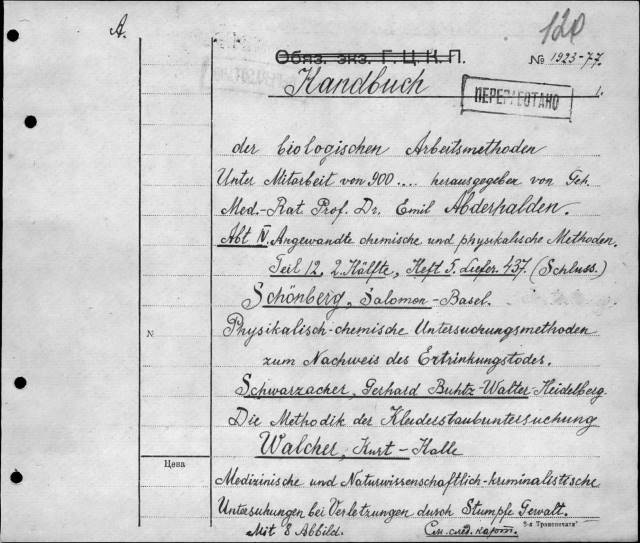 120
A.
Обяз. экз. Г.Ц.К.П.
№ 1923-77.
Handbuch
ПЕРЕРАБОТАНО
der biologischen Arbeitsmethoden
Unter Mitarbeit von 900 .... herausgegeben von Geh.
Med.-Rat Prof. Dr. Emil Abderhalden.
Abt IV. Angewandte chemische und physikalische Methoden.
Teil 12, 2. Hälfte, Heft 5. Liefer. 437. (Schluss.)
Schönberg, Salomon-Basel.
N
Physikalisch-chemische Untersuchungsmethoden
zum Nachweis des Ertrinkungstodes.
Schwarzacher, Gerhard Buhtz-Walter-Heidelberg.
Die Methodik der Kleiderstaubuntersuchung
Walcher, Kurt - Halle
Цена
Medizinische und Naturwissenschaftlich-kriminalistische
Untersuhungen bei Verletzungen durch Stumpfe Gewalt.
Mit 8 Abbild.
См. след. карт.
"3-я Транспечать"